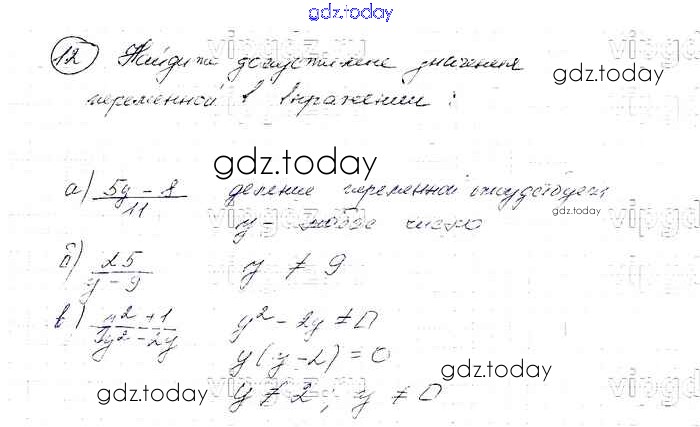 gdz.today
12 Найдите допустимые значения
gdz.today
переменной в выражении:
gdz.today
а) 5y - 8 / 11 деление переменной отсутствует,
gdz.today
y - любое число
б) 25 / y - 9 y ≠ 9
в) y² + 1 / y² - 2y y² - 2y ≠ 0
y(y - 2) = 0
gdz.today
gdz.today
y ≠ 2, y ≠ 0